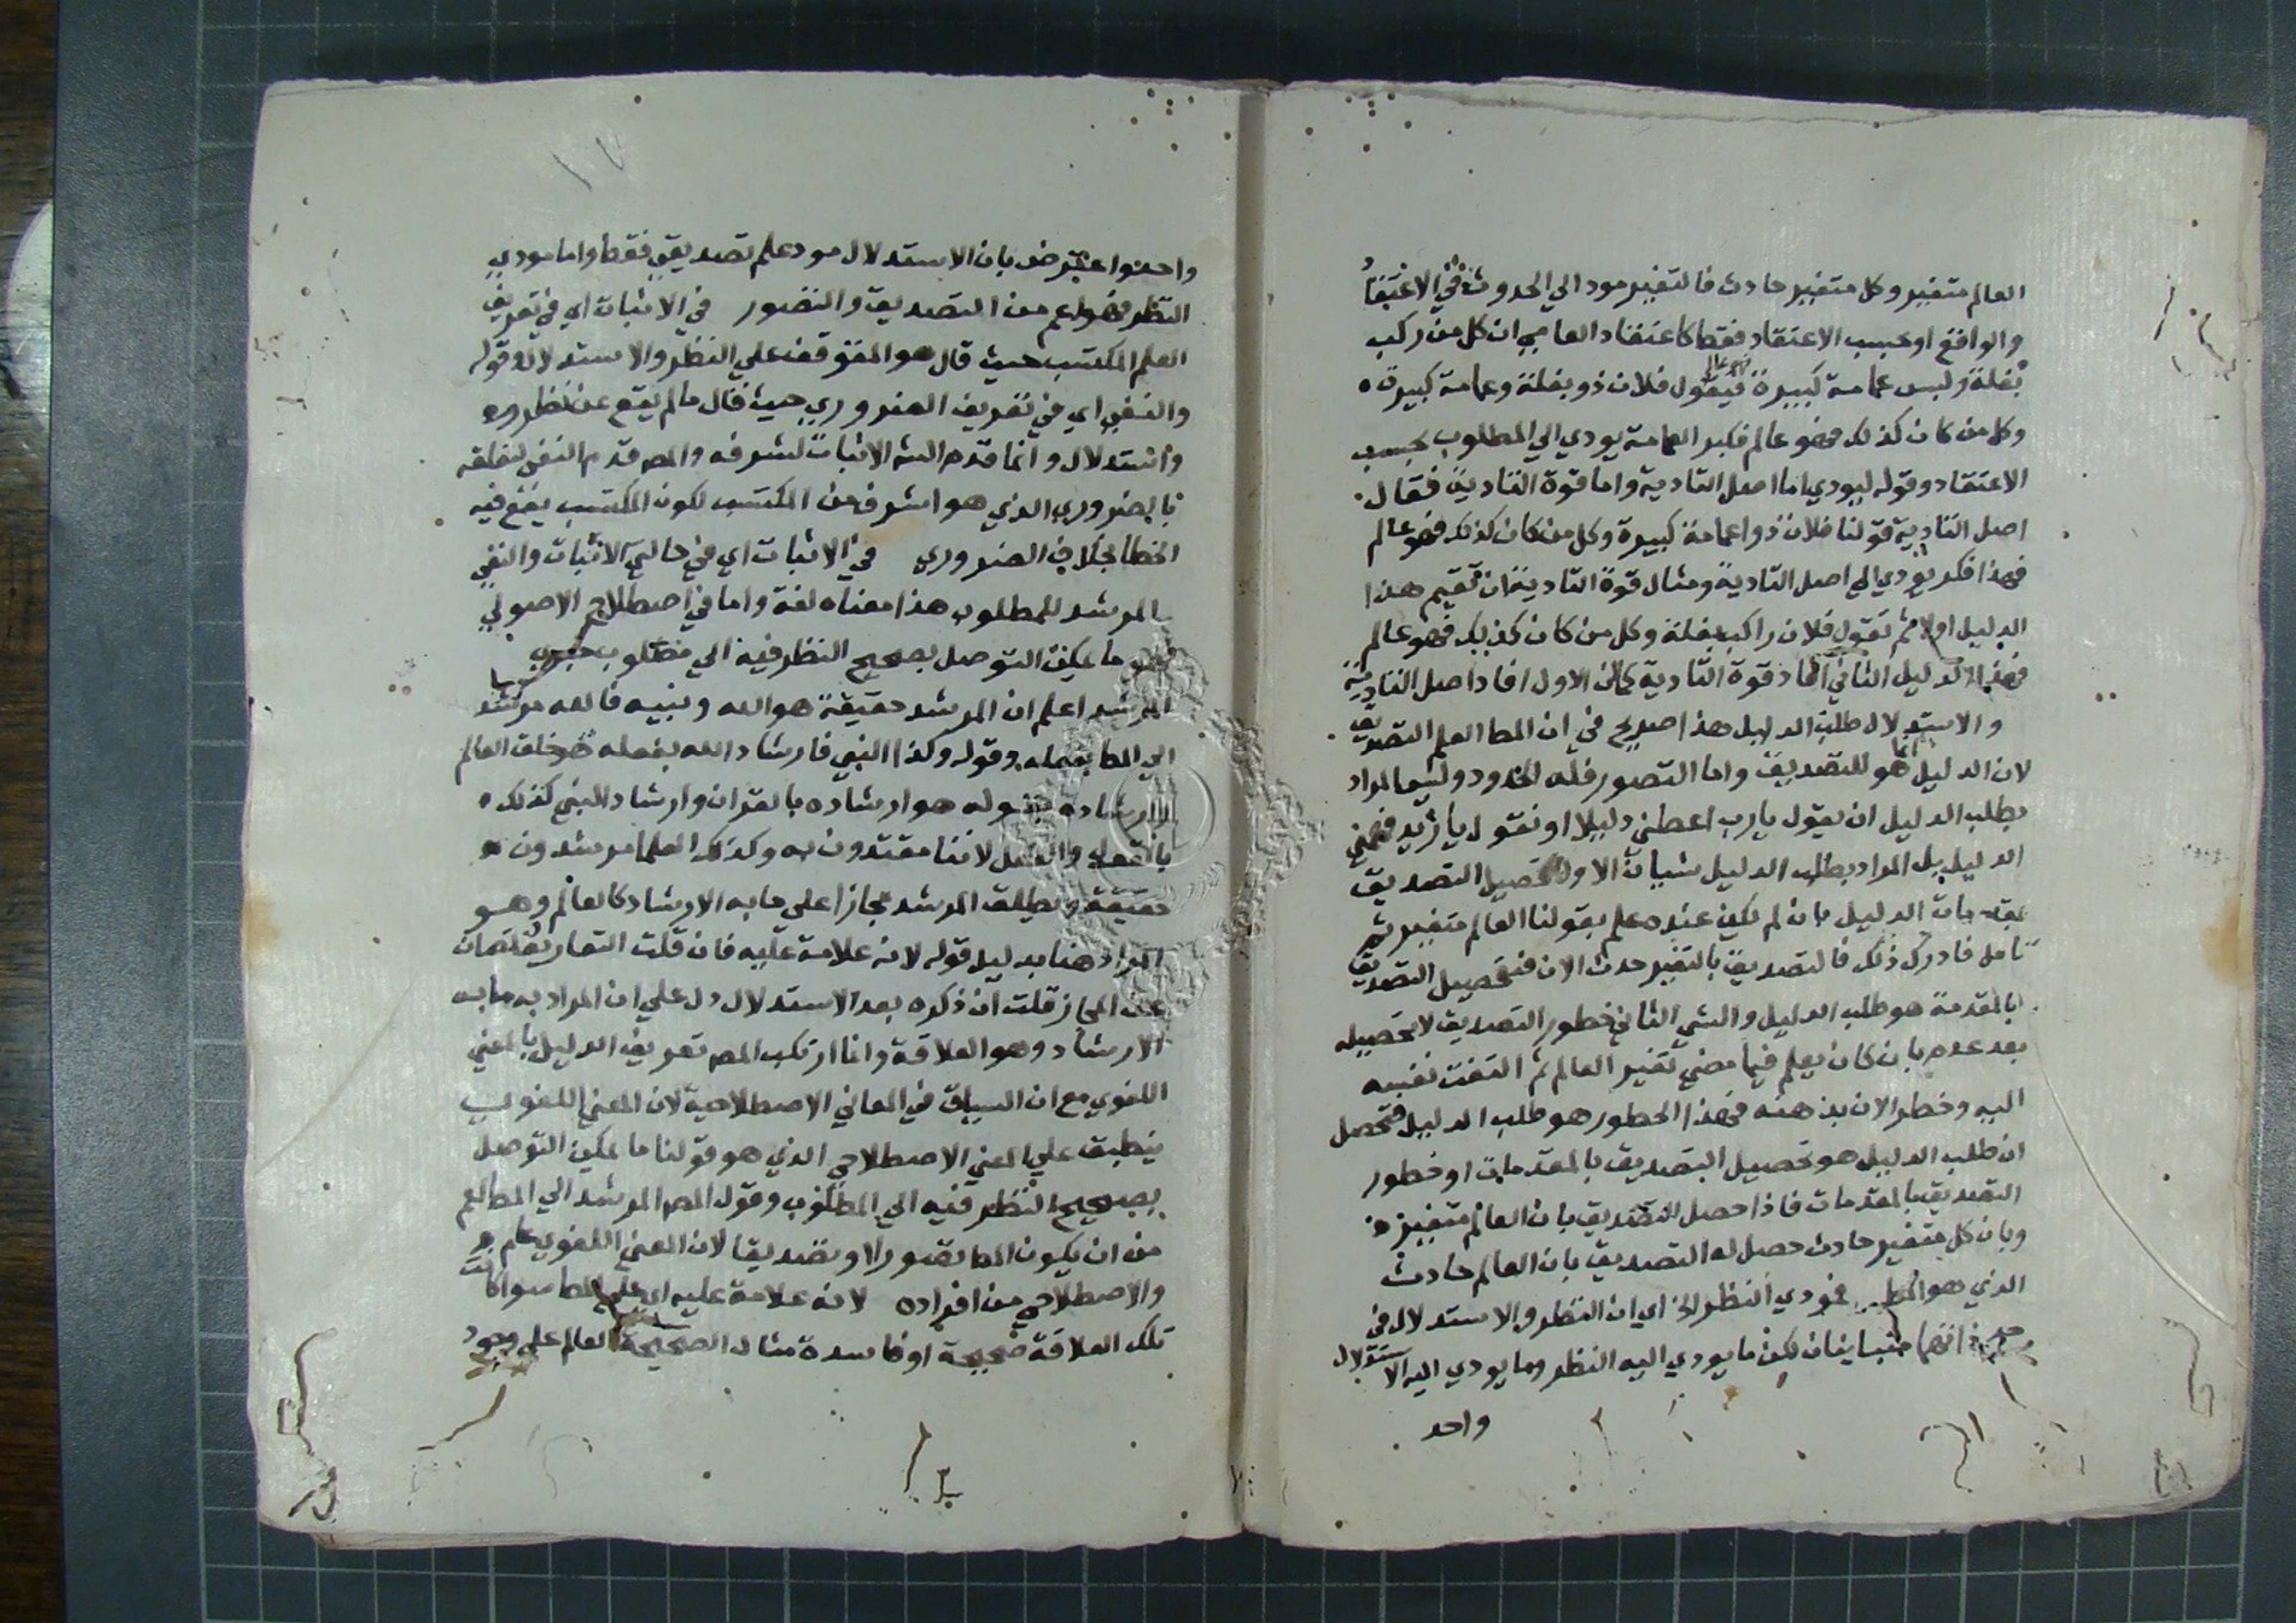 العالم متغير وكل متغير حادث فالتغير مود الي الحدوث في الاعتقاد
والواقع او بحسب الاعتقاد فقط كاعتقاد العامي ان كل من ركب
بغلة ولبس عمامة كبيرة فيقول فلان ذو بغلة وعمامة كبيرة
وكل من كان كذلك فهو عالم فكبر العمامة يودي الي المطلوب بحسب
الاعتقاد وقوله ليودي اما اصل التادية واما قوة التادية فقال
اصل التادية قولنا فلان ذو اعمامة كبيرة وكل من كان كذلك فهو عالم
فهذا فكر يودي الي اصل التادية ومثال قوة التادية ان تقيم هذا
الدليل اولا ثم تقول فلان راكب بغلة وكل من كان كذلك فهو عالم
فهذا الدليل الثاني افاد قوة التادية كان الاول افاد اصل التادية
والاستدلال طلب الدليل هذا صريح في ان المط العلم التصديق
لان الدليل انما هو للتصديق واما التصور فله الحدود وليس المراد
بطلب الدليل ان يقول يا رب اعطني دليلا او نقول يا زيد فهمني
الدليل بل المراد بطلب الدليل شيان الاول تحصيل التصديق
بمقدمات الدليل بان لم يكن عنده علم بقولنا العالم متغير ثم
تامل فادرك ذلك فالتصديق بالتغير حدث الان فتحصيل التصديق
بالمقدمة هو طلب الدليل والشي الثاني خطور التصديق لا تحصيله
بعد عدم بان كان يعلم فيما مضي تغير العالم ثم التفتت نفسه
اليه وخطر الان بذهنه فهذا الخطور هو طلب الدليل فتحصل
ان طلب الدليل هو تحصيل التصديق بالمقدمات او خطور
التصديق بالمقدمات فاذا حصل التصديق بان العالم متغير
وبان كل متغير حادث حصل له التصديق بان العالم حادث
الذي هو المط فمودي النظر الخ اي ان النظر والاستدلال في
انهما متباينان لكن ما يودي اليه النظر وما يودي اليه الاستدلال
واحد
١٧
واحد واعترض بان الاستدلال مود علم تصديقي فقط واما مودي
النظر فهو اعم من التصديق والتصور في الاثبات اي في تعريف
العلم المكتسب حيث قال هو المتوقف علي النظر والاستدلال وقوله
والنفي اي في تعريف الضروري حيث قال ما لم يقع عن نظر
واستدلال وانما قدم الشه الاثبات لشرفه والمص قدم النفي لتعلقه
بالضروري الذي هو اشرف من المكتسب لكون المكتسب يقع فيه
الخطا بخلاف الضروري في الاثبات اي في حالتي الاثبات والنفي
المرشد للمطلوب هذا معناه لغة واما في اصطلاح الاصولي
فهو ما يمكن التوصل بصحيح النظر فيه الي مطلوب خبري
المرشد اعلم ان المرشد حقيقة هو الله ونبيه فالله مرشد
الي المط بفعله وقوله وكذا النبي فارشاد الله بفعله هو خلق العالم
وارشاده بقوله هو ارشاده بالقران وارشاد النبي كذلك
بالقول والفعل لاننا مقتدون به وكذلك العلما مرشدون
حقيقة ويطلق المرشد مجازا علي ما به الارشاد كالعالم وهو
المراد هنا بدليل قوله لانه علامة عليه فان قلت التعاريف تصان
عن المجاز قلت ان ذكره بعد الاستدلال دل علي ان المراد به ما به
الارشاد وهو العلاقة وانما ارتكب المص تعريف الدليل بالمعني
اللغوي مع ان السياق في المعاني الاصطلاحية لان المعني اللغوي
ينطبق علي المعني الاصطلاحي الذي هو قولنا ما يمكن التوصل
بصحيح النظر فيه الي المطلوب وقول المص المرشد الي المط اعم
من ان يكون المط تصورا او تصديقا لان المعني اللغوي عام
والاصطلاحي من افراده لانه علامة عليه اي علي المط سوا كانت
تلك العلاقة صحيحة او فاسدة مثال الصحيحة العالم علي وجود